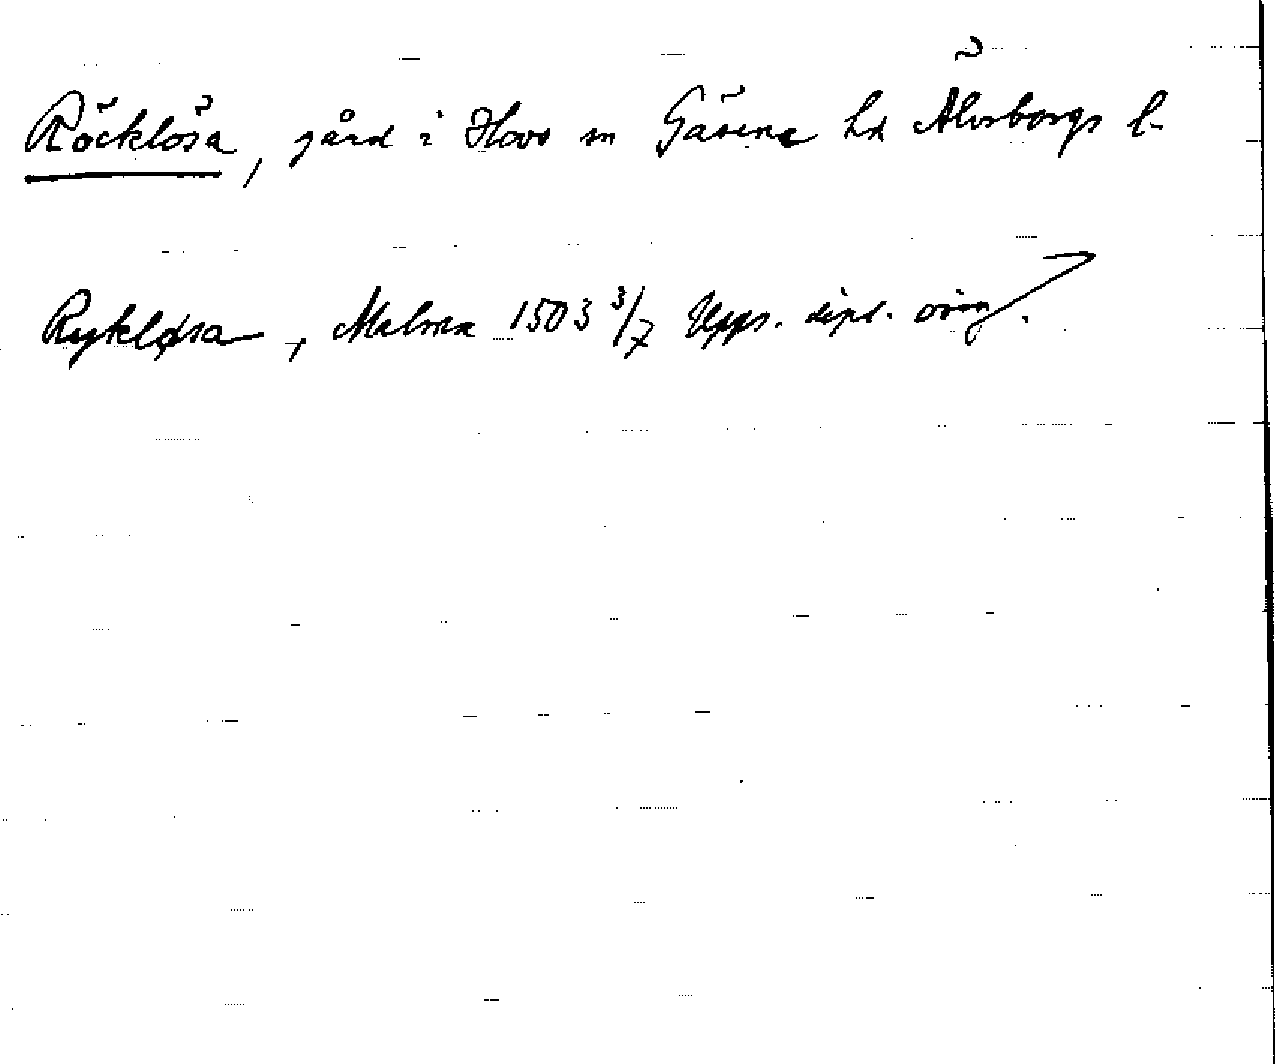 Röcklösa, gård i Hovs sn Gäsene hd Älvsborgs l.
Rykløsa, Malmea 1503 3/7 Upps. dipl. orig.